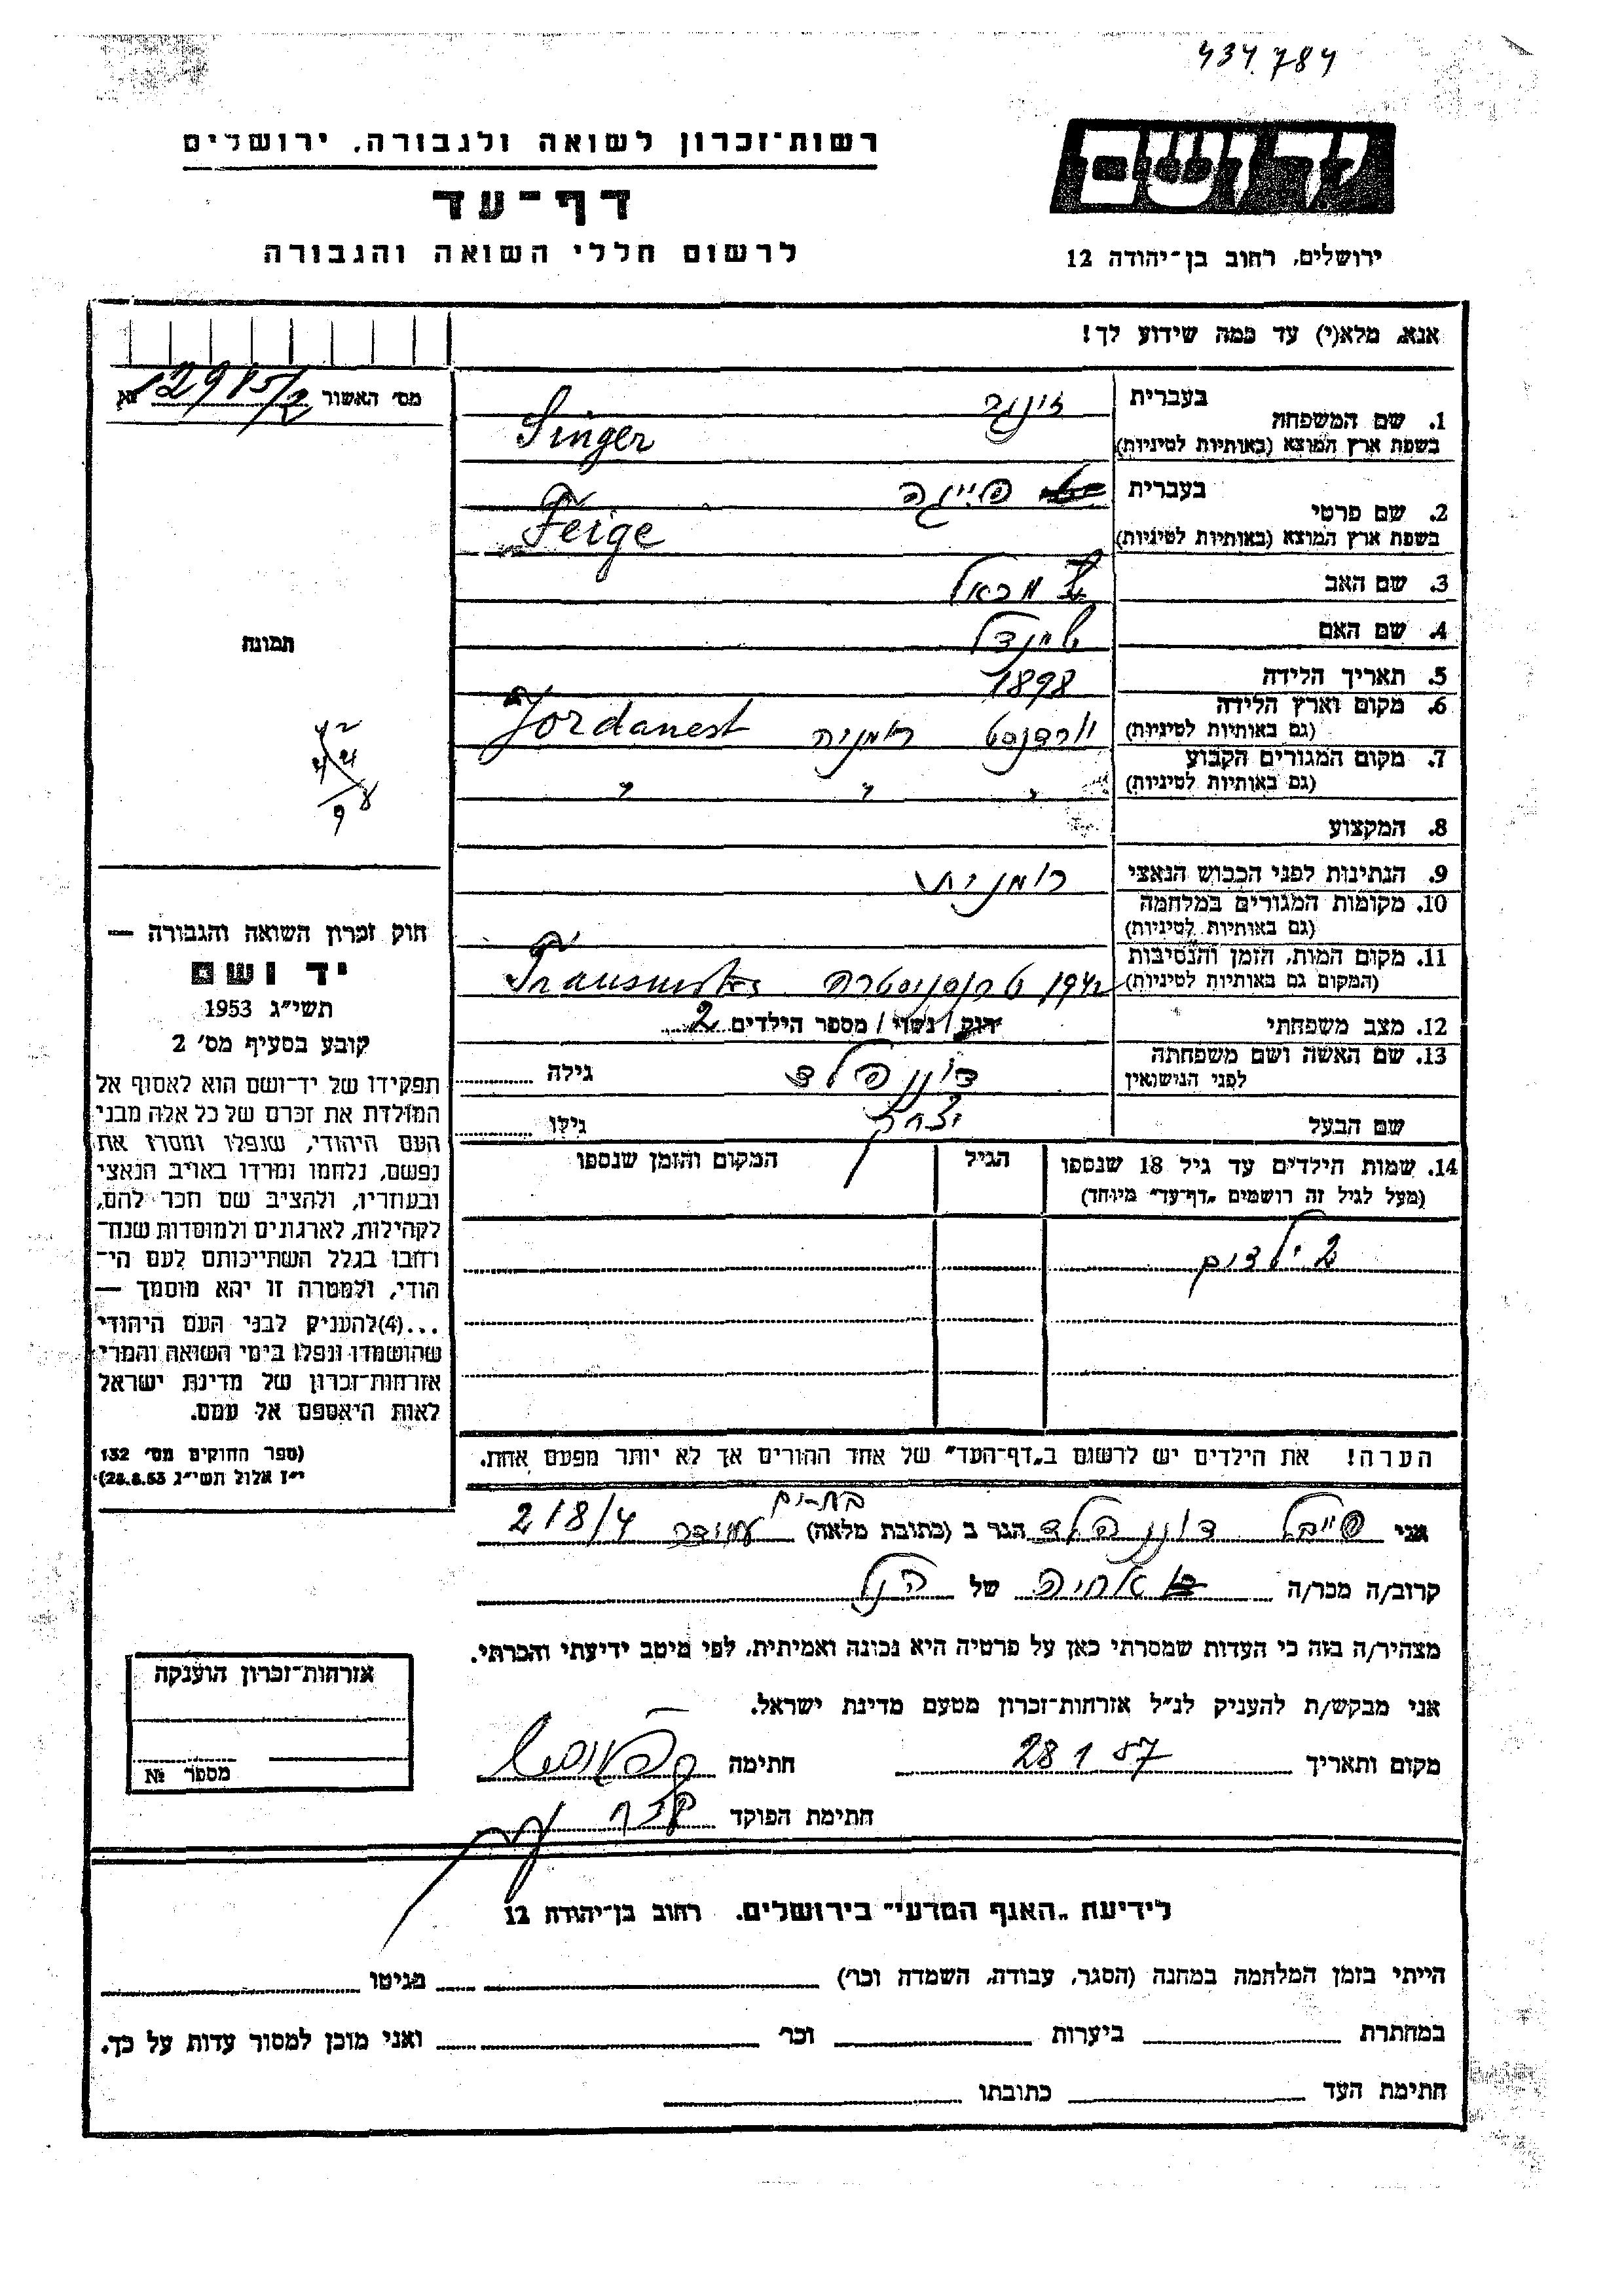 434.784
רשות־זכרון לשואה ולגבורה, ירושלים
דף־עד
לרשום חללי השואה והגבורה
יד ושם
ירושלים, רחוב בן־יהודה 12
אנא, מלא(י) עד כמה שידוע לך!
מס' האשור 12985/2 №
1. שם המשפחה בעברית זינגר
בשפת ארץ המוצא (באותיות לטיניות) Singer
2. שם פרטי בעברית פייגה
בשפת ארץ המוצא (באותיות לטיניות) Feige
3. שם האב
4. שם האם שיינדל
5. תאריך הלידה 1898
6. מקום וארץ הלידה יורדנסט רומניה Jordanest
(גם באותיות לטיניות)
7. מקום המגורים הקבוע " " "
(גם באותיות לטיניות)
8. המקצוע
9. הנתינות לפני הכבוש הנאצי רומנית
10. מקומות המגורים במלחמה
(גם באותיות לטיניות)
11. מקום המות, הזמן והנסיבות 1942 טרנסניסטריה
(המקום גם באותיות לטיניות)
12. מצב משפחתי רווק/ נשוי/ מספר הילדים 2
13. שם האשה ושם משפחתה
לפני הנישואין דוננפלד גילה
שם הבעל יצחק גילו
14. שמות הילדים עד גיל 18 שנספו
(מעל לגיל זה רושמים „דף־עד" מיוחד)
הגיל
המקום והזמן שנספו
2 ילדים
הערה! את הילדים יש לרשום ב„דף־העד" של אחד ההורים אך לא יותר מפעם אחת.
תמונה
חוק זכרון השואה והגבורה —
יד ושם
תשי"ג 1953
קובע בסעיף מס' 2
תפקידו של יד־ושם הוא לאסוף אל
המולדת את זכרם של כל אלה מבני
העם היהודי, שנפלו ומסרו את
נפשם, נלחמו ומרדו באויב הנאצי
ובעוזריו, ולהציב שם וזכר להם,
לקהילות, לארגונים ולמוסדות שנח־
רבו בגלל השתייכותם לעם הי־
הודי, ולמטרה זו יהא מוסמך —
...(4)להעניק לבני העם היהודי
שהושמדו ונפלו בימי השואה והמרי
אזרחות־זכרון של מדינת ישראל
לאות היאספם אל עמם.
(ספר החוקים מס' 132
י"ז אלול תשי"ג 28.8.53)
אני פייבל דוננפלד הגר ב (כתובת מלאה) בת־ים עמידר 218/4
קרוב/ה מכר/ה אחיה של הנ"ל
מצהיר/ה בזה כי העדות שמסרתי כאן על פרטיה היא נכונה ואמיתית, לפי מיטב ידיעתי והכרתי.
אני מבקש/ת להעניק לנ"ל אזרחות־זכרון מטעם מדינת ישראל.
מקום ותאריך 28 1 57 חתימה
חתימת הפוקד
אזרחות־זכרון הוענקה
מספר №
לידיעת „האגף המדעי" בירושלים, רחוב בן־יהודה 12
הייתי בזמן המלחמה במחנה (הסגר, עבודה, השמדה וכו') בגיטו
במחתרת ביערות וכו' ואני מוכן למסור עדות על כך.
חתימת העד כתובתו